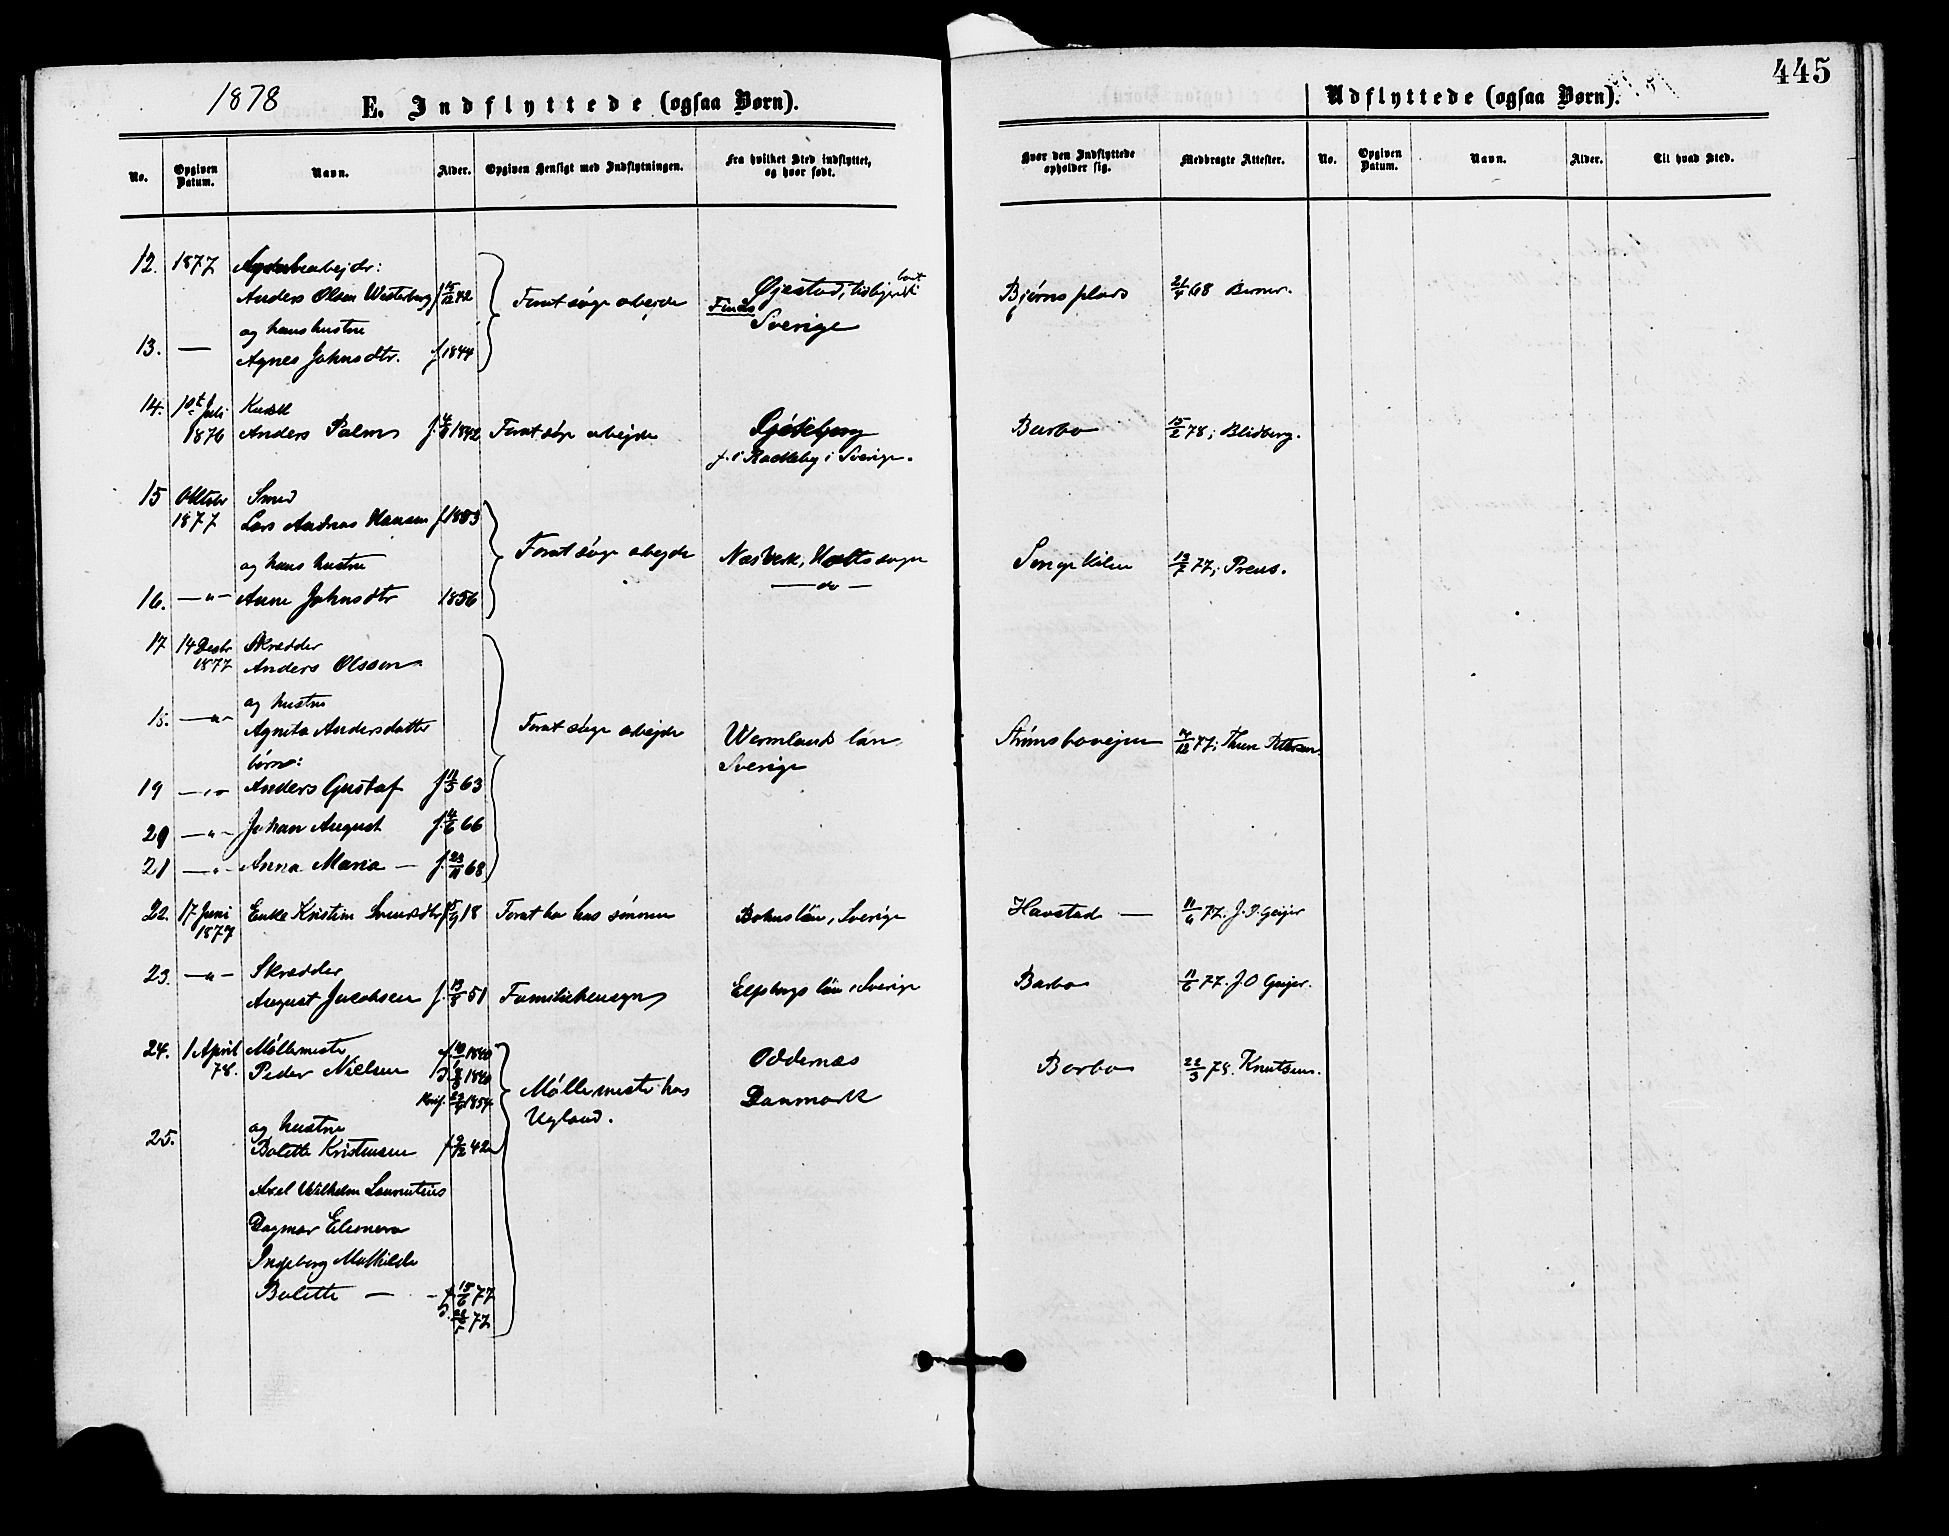 1878
E. Indflyttede (ogsaa Børn).
Udflyttede (ogsaa Børn).
445
No.
Opgiven Datum.
Navn.
Alder.
Opgiven Hensigt med Indflytningen.
Fra hvilket Sted indflyttet, og hvor født.
Hvor den Indflyttede opholder sig.
Medbragte Attester.
No.
Opgiven Datum.
Navn.
Alder.
Til hvad Sted.
12. 1877
Anders Olsen Westerberg f 15/12 42
og hans hustru
13. — Agnes Johnsdtr. f 1844
Forat søge arbejde
Øjestad,
Sverige
Bjørnsplads
21/4 68 Berner.
14. 10de Juli Kusk
1876 Anders Palm f. 1842 Forat søge arbejde
f. i Rackeby i Sverige.
Barbo
15/2 78; Blidberg.
15 Oktobr Smed
1877 Lars Andreas Hansen f 1853
og hans hustru
16. —"— Anne Johnsdtr 1856
Forat søge arbejde
Næs Verk, Holts sogn
— do —
Songe Kilen
13/7 77; Preus.
17 14 Decbr Skrædder
1877 Anders Olsson
og hustru
18. —"— Agneta Andersdatter
børn:
19 —"— Anders Gustaf f 11/3 63
20 —"— Johan August f. 66
21 —"— Anna Maria — f. 23/11 68
Forat søge arbejde
Wermlands län
Sverige
Strømsbovejen
12 77; Thure Petterson.
22. 17 Juni Enke Kristine Svensdtr 18 Forat bo hos sønnen
1877
Bohuslän, Sverige
Havstad —
11/6 77. J. O. Geijer
23. —"— Skrædder
August Jacobsen f. 19/8 51 Familiehensyn
Elfsborgs län i Sverige
Barbo
11/6 77. J O Geijer.
24. 1 April Møllemester
78. Peder Nielsen
1840
1840
Konf. 1854
og hustru
25. Bolette Kristensen f 9/12 42
Møllemester hos
Ugland.
Oddernæs
Danmark
Barbo
22/3 78. Knutsen.
Axel Wilhelm Laurentius
Dagmar Eleonora
Ingeborg Mathilde
Bolette — f. 15/6 77
77